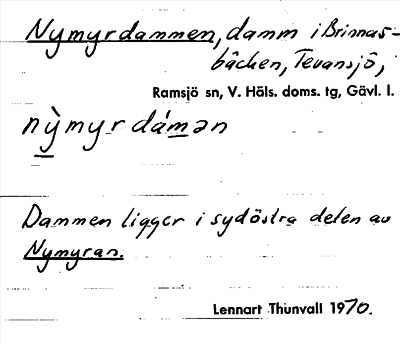 Nymyrdammen, damm i Brinnas-
bäcken, Tevansjö,
Ramsjö sn, V. Häls. doms. tg, Gävl. l.
nỳmyrdámən
Dammen ligger i sydöstra delen av
Nymyran.
Lennart Thunvall 1970.